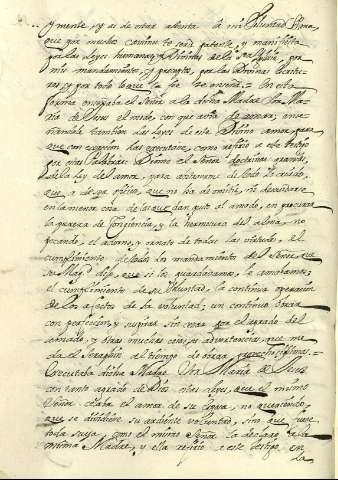 y mente, y as de estar atenta a mi Voluntad
que por muchos caminos te será patente, y manifiesta
por las Leyes humanas, y Divinas de la Iglesia, por
mis mandamientos, y preceptos, por las Divinas Escritu-
ras, y por todo lo que la fee te enseña. En esta
forma enseñaba el Señor a la dicha Madre Sor Ma-
ria de Jesus el modo, con que avia de amar, ense-
ñandola tambien las Leyes de este Divino amor, para
que con perfeccion las executasse, como refirio a este testigo
por estas Palabras: Diòme el Señor doctrinas grandes
de la Ley del amor, para
que a de ser fixo, que no ha de omitir, ni descuidarse
en la menor cosa de lo que da gusto al amado, en procurar
la pureza de Conciencia, y la hermosura del alma, no
feeando, el adorno, y ornato de todas las virtudes, el
cumplimiento de todos los mandamientos del Señor, que
su Mag.d dijo, que si los guardabamos, le amabamos;
el cumplimiento de su Voluntad, la continua operacion
de los afectos de la voluntad; un continuo obrar
con perfeccion, y suspirar sin cesar por el agrado del
amado, y otras muchas cosas, y advertencias, que me
da el Seraphin al tiempo de obrar
Executaba dicha Madre Sor Maria de Jesus
con tanto agrado de Dios estas leyes, que el mismo
Señor zelaba el amor de su Esposa, no queriendo,
que se dividiesse su ardiente voluntad, sino que fuesse
toda suya, como el mismo Señor lo declarò a la
misma Madre, y ella refirio a este testigo en
la